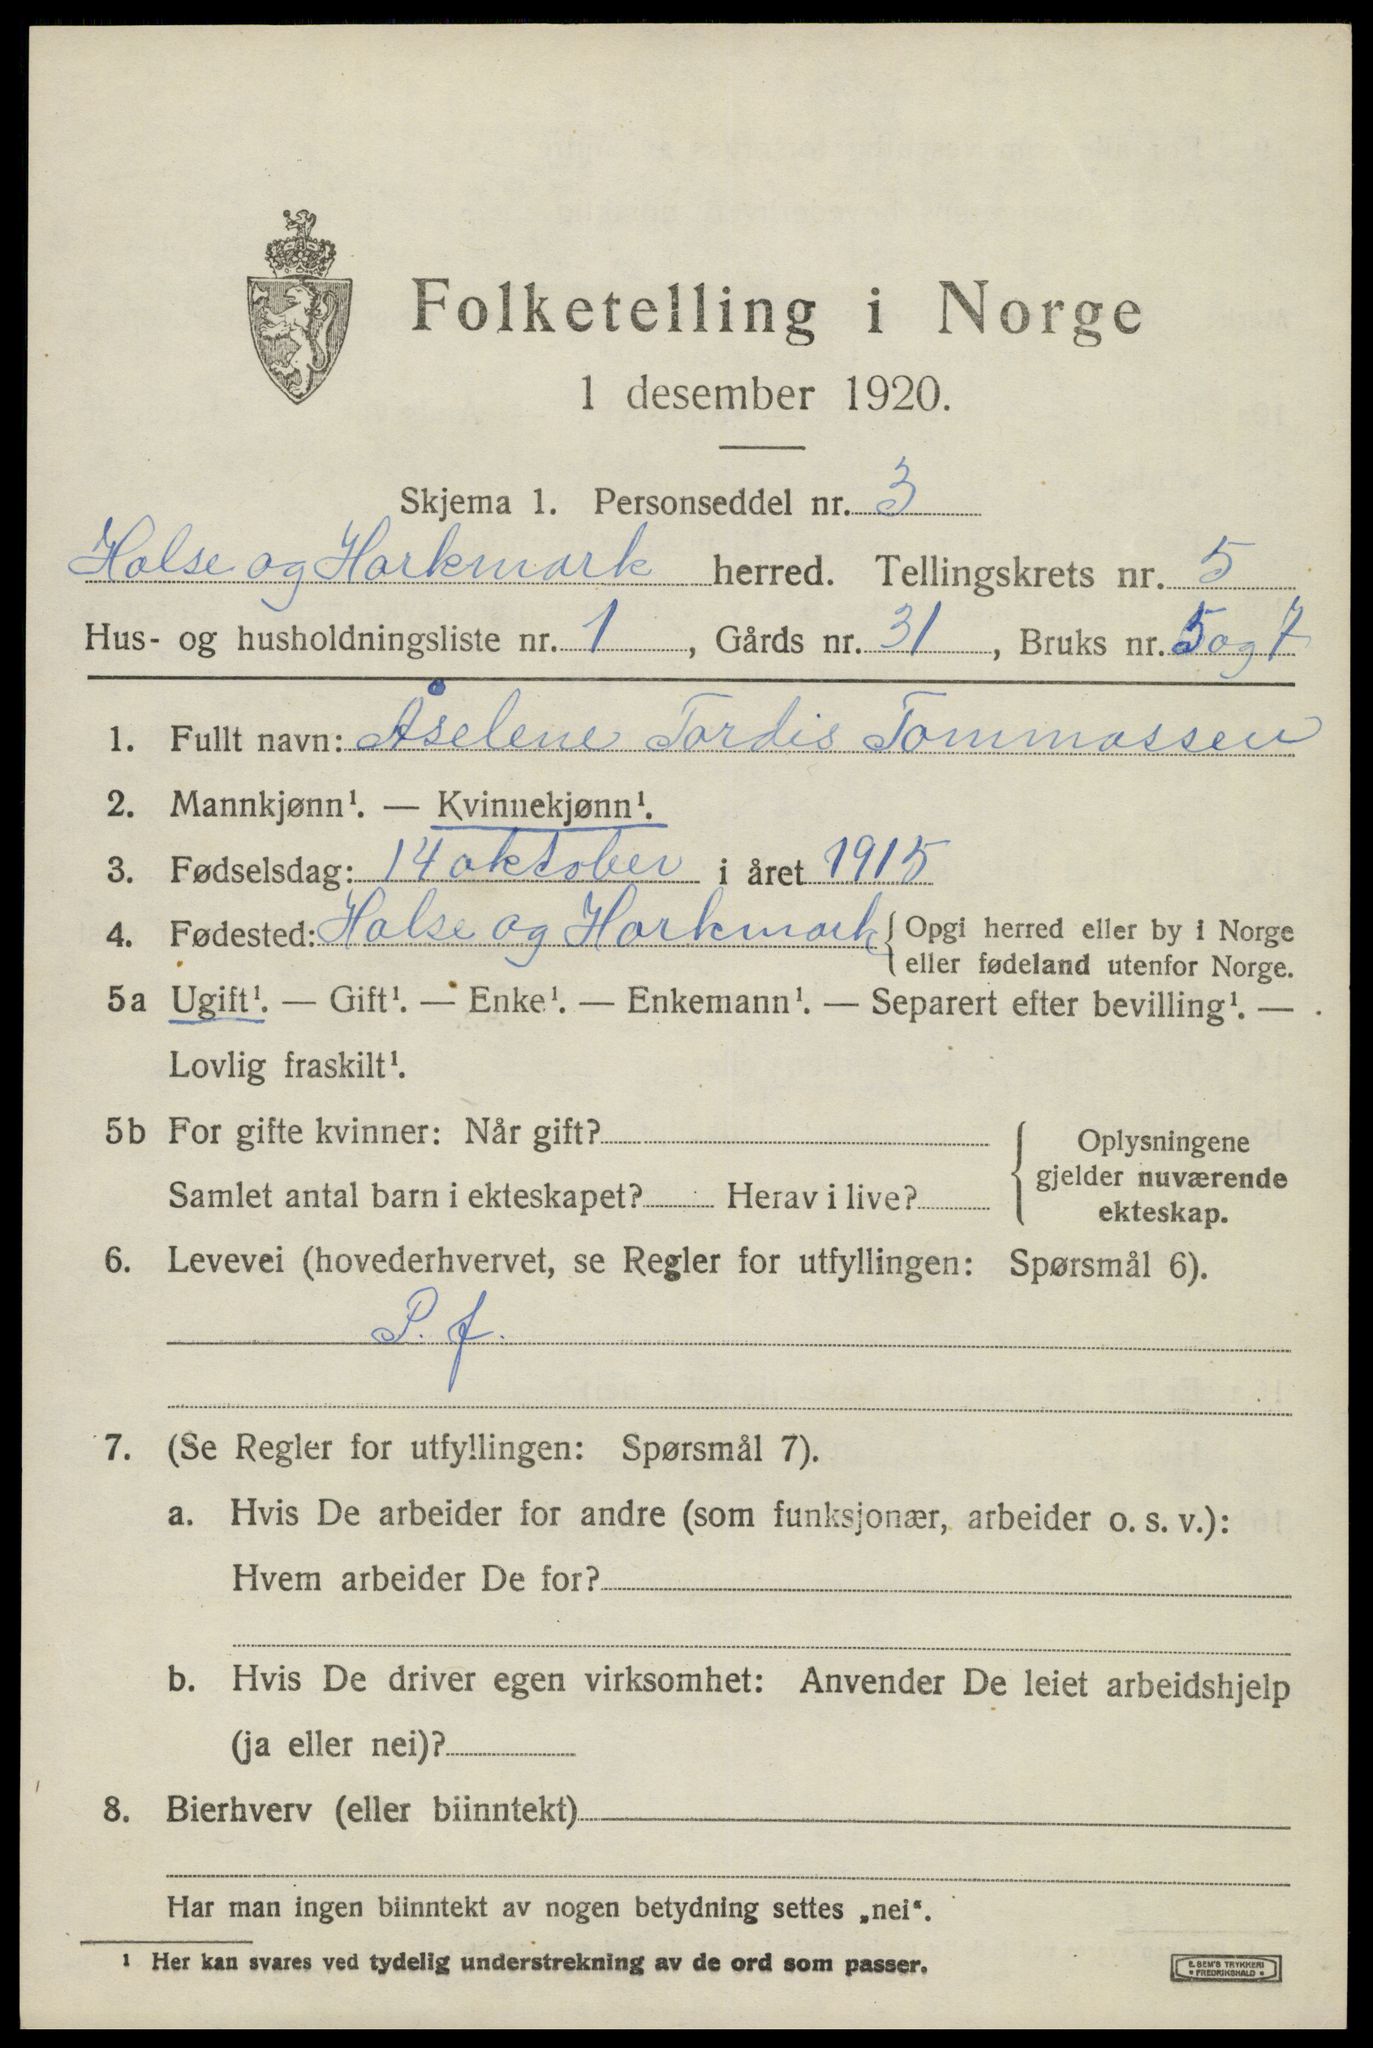 Folketelling i Norge
1 desember 1920.
Skjema 1. Personseddel nr. 3
Halse og Harkmark herred. Tellingskrets nr. 5
Hus- og husholdningsliste nr. 1, Gårds nr. 31, Bruks nr. 5 og 7
1. Fullt navn: Åselene Tordis Tommassen
2. Mannkjønn¹. — Kvinnekjønn¹.
3. Fødselsdag: 14 oktober i året 1915
4. Fødested: Halse og Harkmark { Opgi herred eller by i Norge
eller fødeland utenfor Norge.
5a Ugift¹. — Gift¹. — Enke¹. — Enkemann¹. — Separert efter bevilling¹. —
Lovlig fraskilt¹.
5b For gifte kvinner: Når gift?
Samlet antal barn i ekteskapet? Herav i live?
Oplysningene
gjelder nuværende
ekteskap.
6. Levevei (hovederhvervet, se Regler for utfyllingen: Spørsmål 6).
P. f.
7. (Se Regler for utfyllingen: Spørsmål 7).
a. Hvis De arbeider for andre (som funksjonær, arbeider o. s. v.):
Hvem arbeider De for?
b. Hvis De driver egen virksomhet: Anvender De leiet arbeidshjelp
(ja eller nei)?
8. Bierhverv (eller biinntekt)
Har man ingen biinntekt av nogen betydning settes „nei“.
¹ Her kan svares ved tydelig understrekning av de ord som passer.
E. SEM'S TRYKKERI
• FREDRIKSHALD •